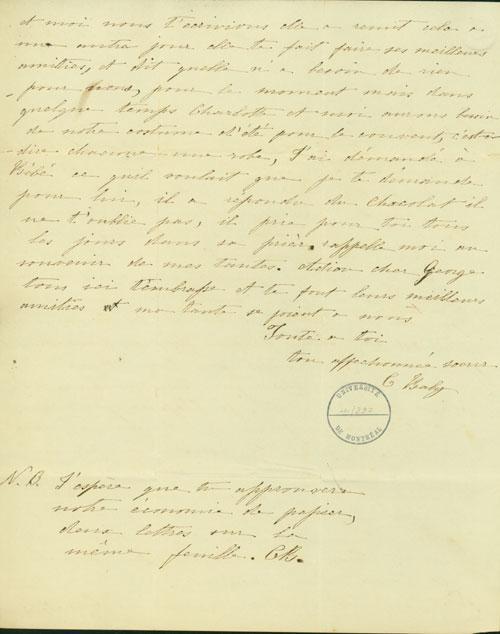 et moi nous t'ecrivions elle a remit cela a
une autre jour elle te fait faire ses meilleures
amitiés, et dit quelle n'a besoin de rien
pour nous, pour le moment mais dans
quelque temps Charlotte et moi aurons besoin
de notre costume d'été pour le couvent, c'est a
dire chacune une robe, J'ai démandé a
Bébé ce qu'il voulait que je te démande
pour lui, il a répondu du Chocolat il
ne t'oublie pas, il prie pour toi tous
les jours dans sa prière. rappelle moi au
souvenir de mes tantes. Adieu cher George
tous ici t'embrasse et te font leurs meilleures
amitiés et ma tante se joient a nous
Toute a toi
ton affectionnée soeur
C Baby
UNIVERSITÉ
DE MONTRÉAL
N.B. J'espere que tu approuvera
notre économie de papier,
deux lettres sur la
même feuille. CB.